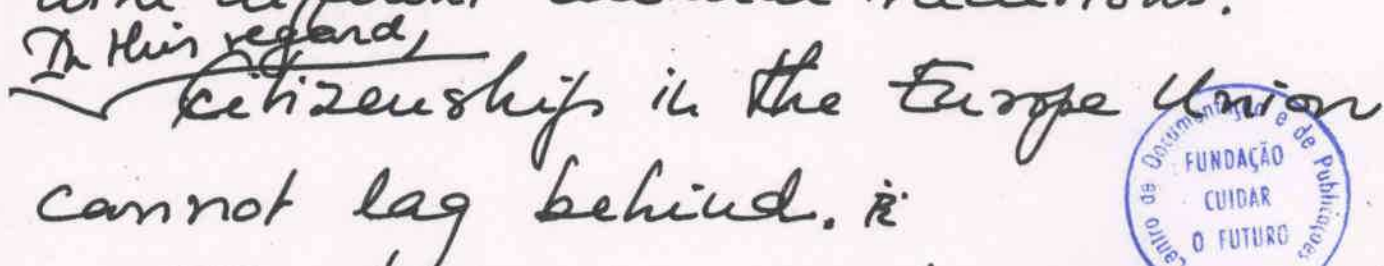 with different
In this regard,
citizenship in the Europe Union
cannot lag behind.
Centro de Documentação e de Publicações
FUNDAÇÃO
CUIDAR
O FUTURO